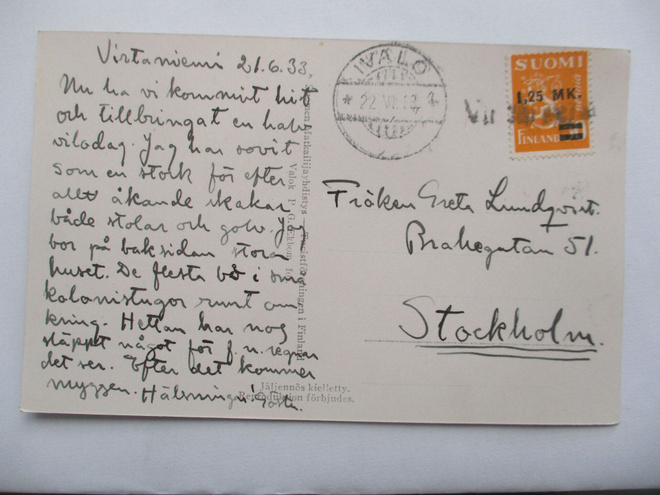 Virtaniemi 21.6.33.
Nu ha vi kommit hit
och tillbringat en halv
vilodag. Jag har sovit
som en stock för efter
allt åkande skakar
både stolar och golv. Jag
bor på baksidan stora
huset. De flesta bo i små
kolonistugor runt om
kring. Hettan har nog
släppt något för f. n. regnar
det ser. Efter det kommer
myggen. Hälsningar Gösta.
IVALO
* 22 VI
SUOMI
1,25 MK.
FINLAND
Fröken Greta Lundqvist.
Brahegatan 51.
Stockholm.
Matkailijayhdistys — Turistföreningen i Finland
Valok.
Jäljennös kielletty.
Reproduktion förbjudes.